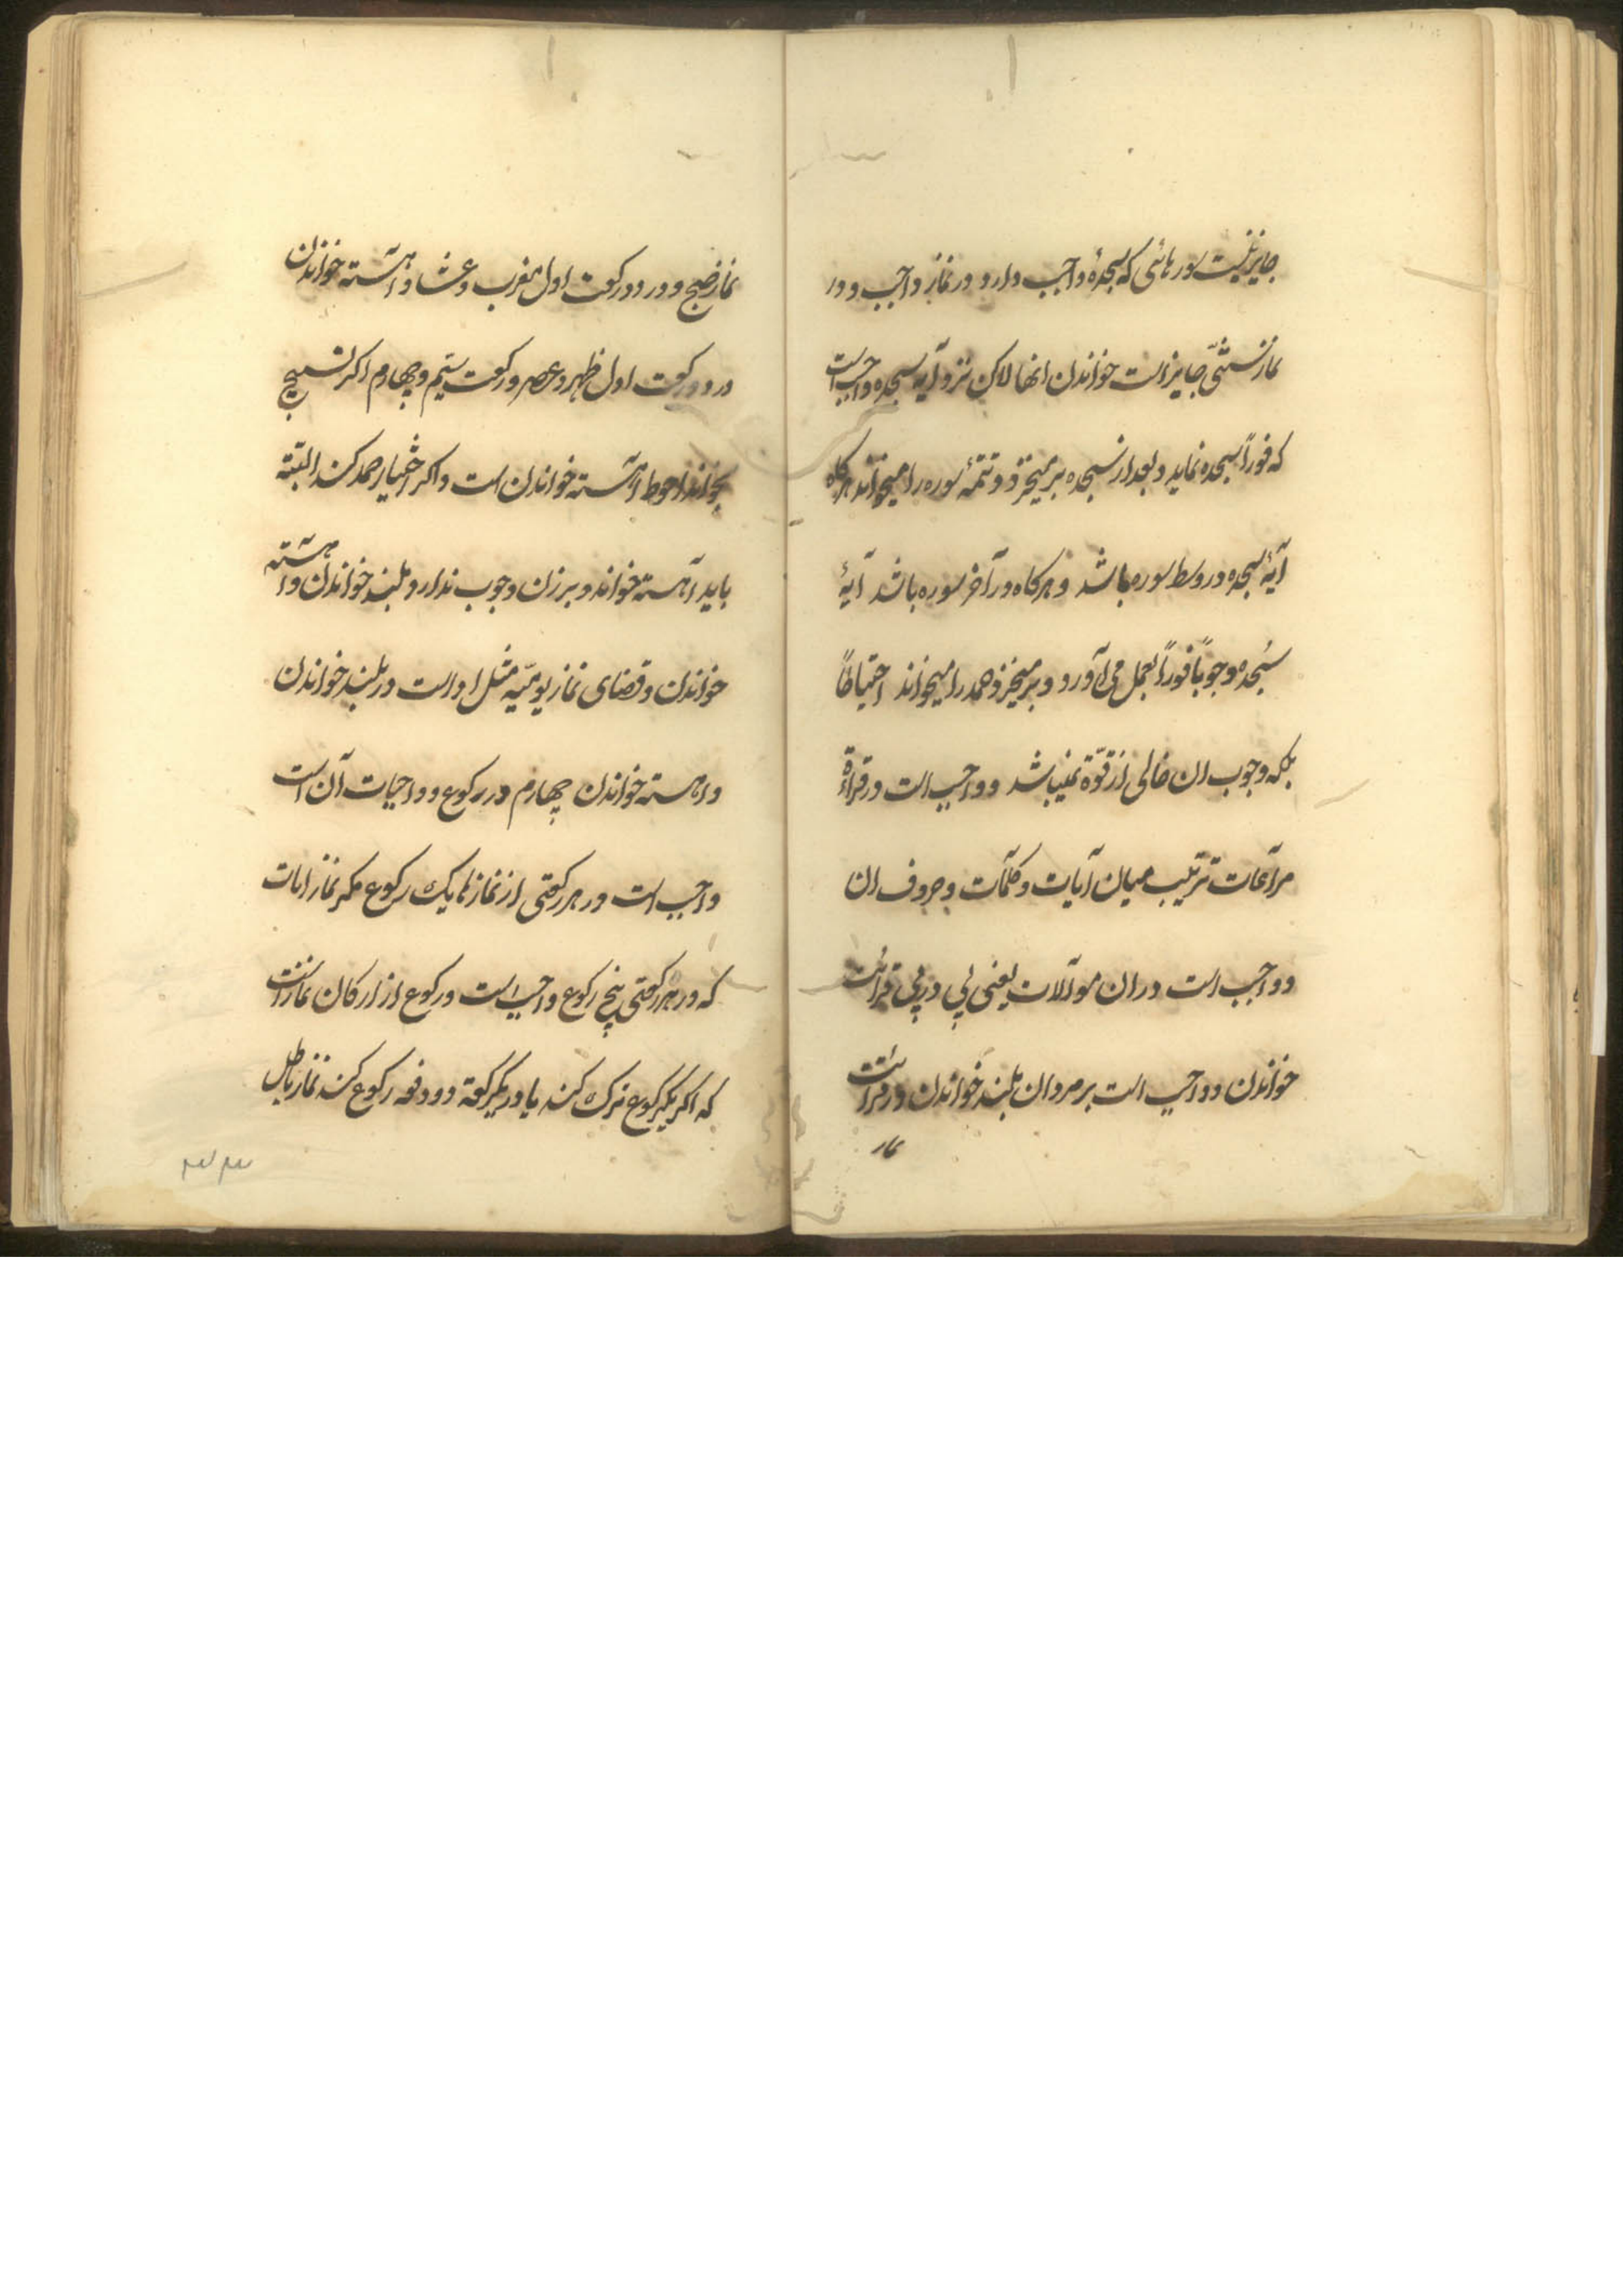 جایز نیست سورهائی که سجدۀ واجب دارد در نماز واجب و در
نماز سنتی جایز است خواندن انها لاکن نزد آیه سجده واجبست
که فوراً سجده نماید و بعد از سجده برمیخیزد و تتمۀ سوره را میخواند هرکاه
آیۀ سجده در وسط سوره باشد و هرکاه در آخر سوره باشد آیۀ
سجده وجوباً فوراً بعمل می آورد و برمیخیزد و حمد را میخواند احتیاطاً
بلکه وجوب ان خالی از قوّة نمیباشد و واجب است در قراءة
مرآعات ترتیب میان آیات و کلمآت و حروف ان
و واجب است در ان موآلات یعنی پی در پی قرائت
خواندن و واجب است بر مردان بلند خواندن در قرائت
نماز
نماز صبح و در دو رکعت اول مغرب و عشا و آهسته خواندن
در دو رکعت اول ظهر و عصر و رکعت سیّم و چهارم اکر تسبیح
بخواند احوط آهسته خواندن است و اکر اختیار حمد کند البتّه
باید آهسته خواند و بر زن وجوب ندارد بلند خواندن و آهسته
خواندن و قضای نماز یومیّه مثل ادا است در بلند خواندن
و اهسته خواندن چهارم در رکوع و واجبات آن است
واجب است در هر رکعتی از نمازها یک رکوع مکر نماز ایات
که در هر رکعتی پنج رکوع واجب است و رکوع از ارکان نماز است
که اکر یکرکوع ترک کند یا در یکرکعة دو دفعه رکوع کند نماز باطل